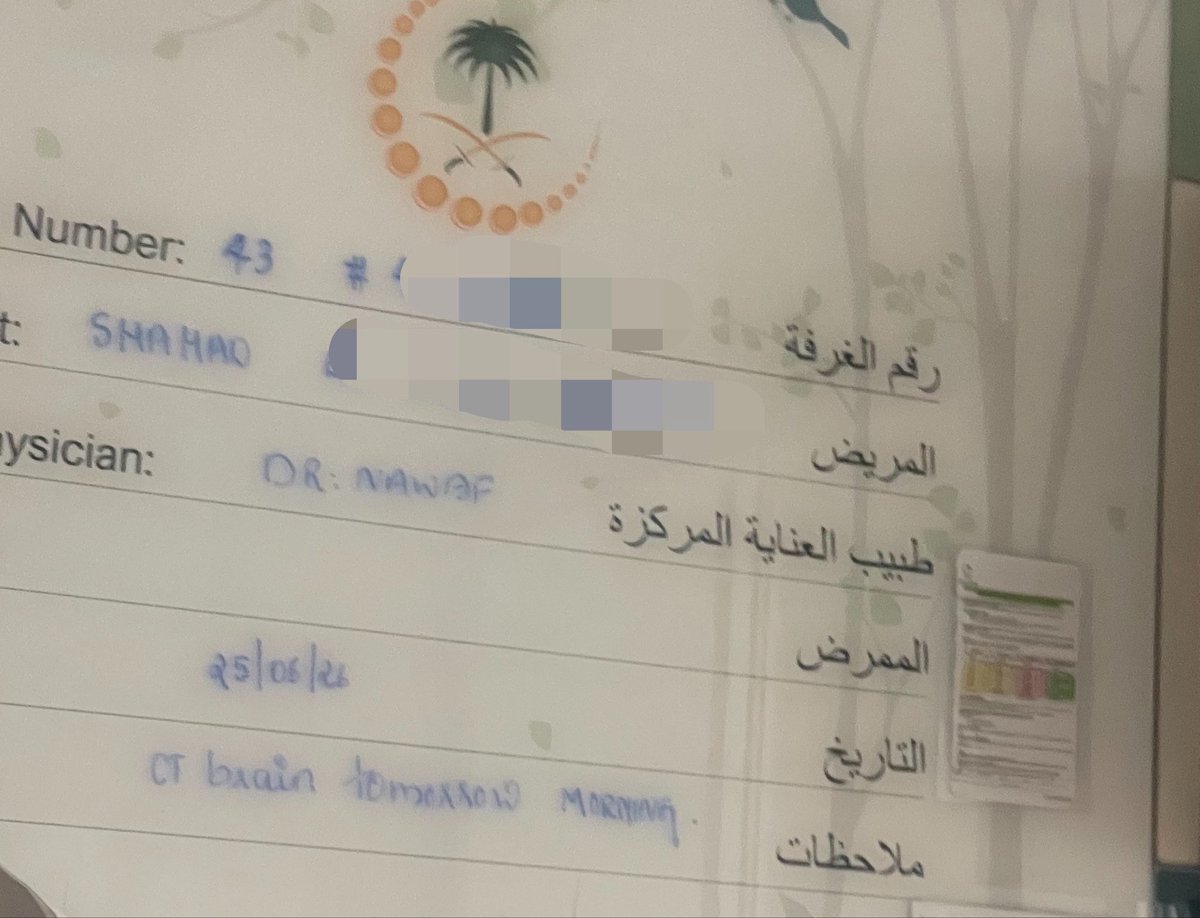 Number: 43 # رقم الغرفة
t: SHAHAD المريض
ysician: DR: NAWAF طبيب العناية المركزة
الممرض
25/06/26 التاريخ
CT brain tomorrow MORNING. ملاحظات